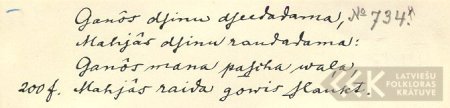 Ganôs dſinu dſeedadama, № 734.
Mahjâs dſinu raudadama:
Ganôs mana paſcha wala,
200 f. Mahjâs raida gowis ſlaukt.
LATVIEŠU
FOLKLORAS
KRATUVE